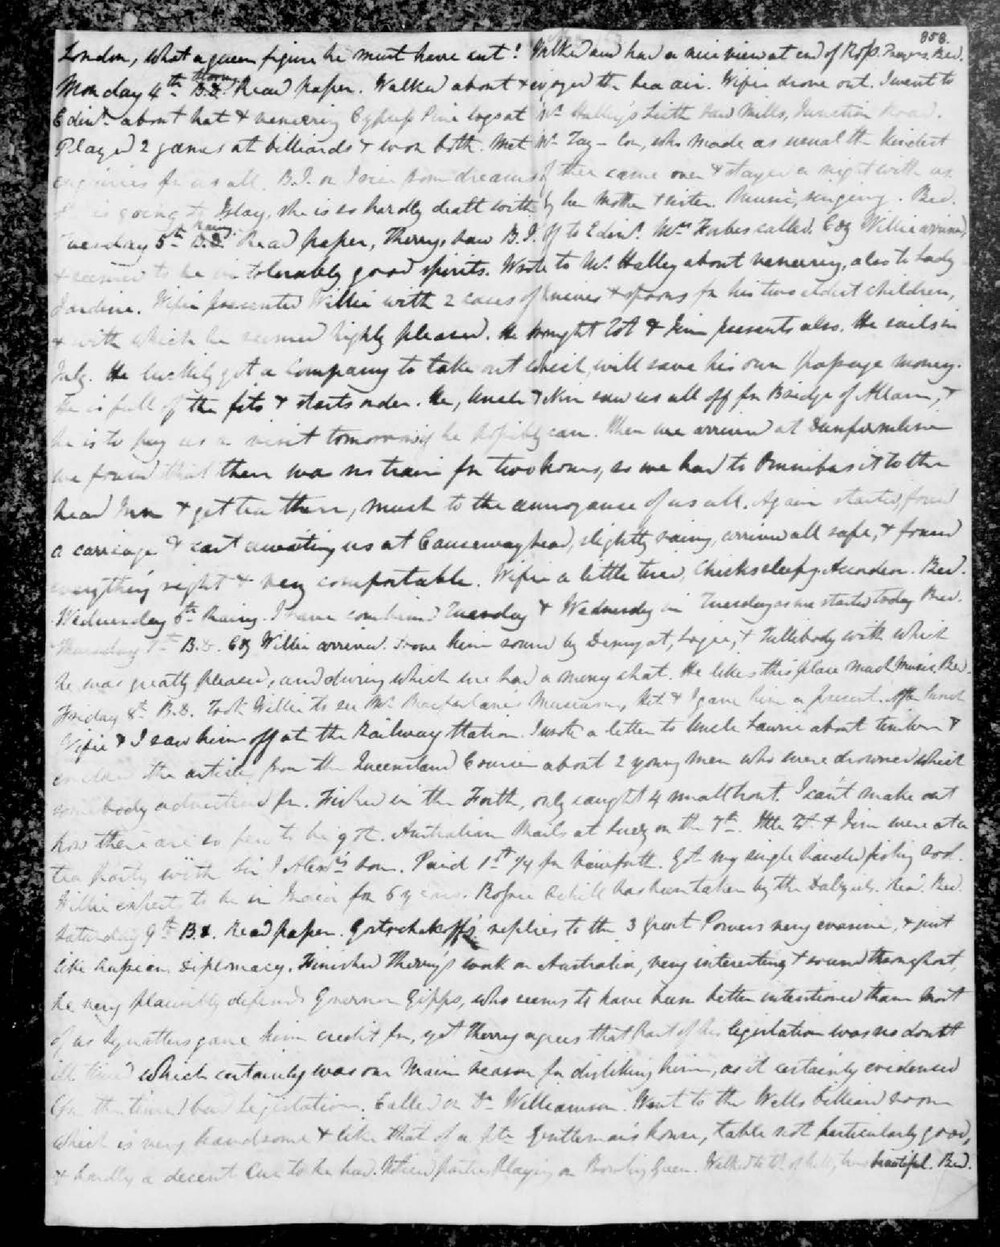 858.
London, what a queer figure he must have cut! Walked and had a nice view at end of Prayers. Bed.
Monday 4th B.&. Read paper. Walked about & enjoyed the sea air. Wifie drove out. I went to
Edinr. about hat & veneering Cypress Pine logs at Mr. Halley's Leith Saw Mills, Junction Road.
Played 2 games at billiards & won both. Met Mr. Tay-lor, who made as usual the kindest
enquiries for us all. B.I. or I over came over & stayed a night with us
is going to Islay, she is so hardly dealt with by her Mother & sister. Music, singing. Bed.
Tuesday 5th B.&. Read paper, Therry, saw B.I. off to Edinr. Mrs. Forbes called. Willie arrived,
& seemed to be in tolerably good spirits. Wrote to Mr. Halley about veneering, also to Lady
Jardine. Wifie presented Willie with 2 cases of knives & spoons for his two eldest children,
& with which he seemed highly pleased. He brought Tot & Jim presents also. He sails in
July. He luckily got a Company to take out which will save his own passage money.
He is full of the fits & starts order. He, Uncle & saw us all off for Bridge of Allan, &
he is to pay us a visit tomorrow if he possibly can. When we arrived at Dunfermline
we found that there was no train for two hours, so we had to Omnibus it to the
head Inn & get tea there, much to the annoyance of us all. Again started, found
a carriage & cart awaiting us at Causewayhead, slightly rainy, arrived all safe, & found
everything right & very comfortable. Wifie a little tired, Chicks sleepy. Accordeon. Bed.
Wednesday 6th Rainy. I have combined Tuesday & Wednesday in Tuesday as we started today. Bed.
Thursday 7th B.&. Willie arrived. Drove him round by Demyat, Logie, & Tullibody with which
he was greatly pleased, and during which we had a merry chat. He likes this place much. Music. Bed.
Friday 8th B.&. Took Willie to see Mr. Macfarlane's Museum, Kit & I gave him a present. After lunch
Wifie & I saw him off at the Railway Station. I wrote a letter to Uncle about timber &
enclosed the article from the Queensland Courier about 2 young men who were drowned which
somebody advertised for. Fished in the Forth, only caught 4 small trout. I can't make out
how there are so few to be got. Australian Mails at Suez on the 7th. Tot & Jim were at a
tea party with Sir J. Alexr's son. Paid 1st for . Got my single handed fishing rod.
Willie expects to be in India for 6 years. has been taken by the Dalzells. Read. Bed.
Saturday 9th B.&. Read paper. Gortschakoff's replies to the 3 Great Powers very evasive, & just
like European diplomacy. Finished Therry's work on Australia, very interesting & sound throughout,
he very plausibly defends Governor Gipps, who seems to have been better intentioned than most
of us Squatters gave him credit for, yet Therry agrees that part of his legislation was no doubt
ill timed which certainly was our main reason for disliking him, as it certainly evidenced
(for the time) bad legislation. Called on Dr. Williamson. Went to the Wells billiard room
which is very handsome & like that of a fete Gentleman's house, table not particularly good,
& hardly a decent Cue to be had. parties playing on Bowling Green. Walked to beautiful. Bed.